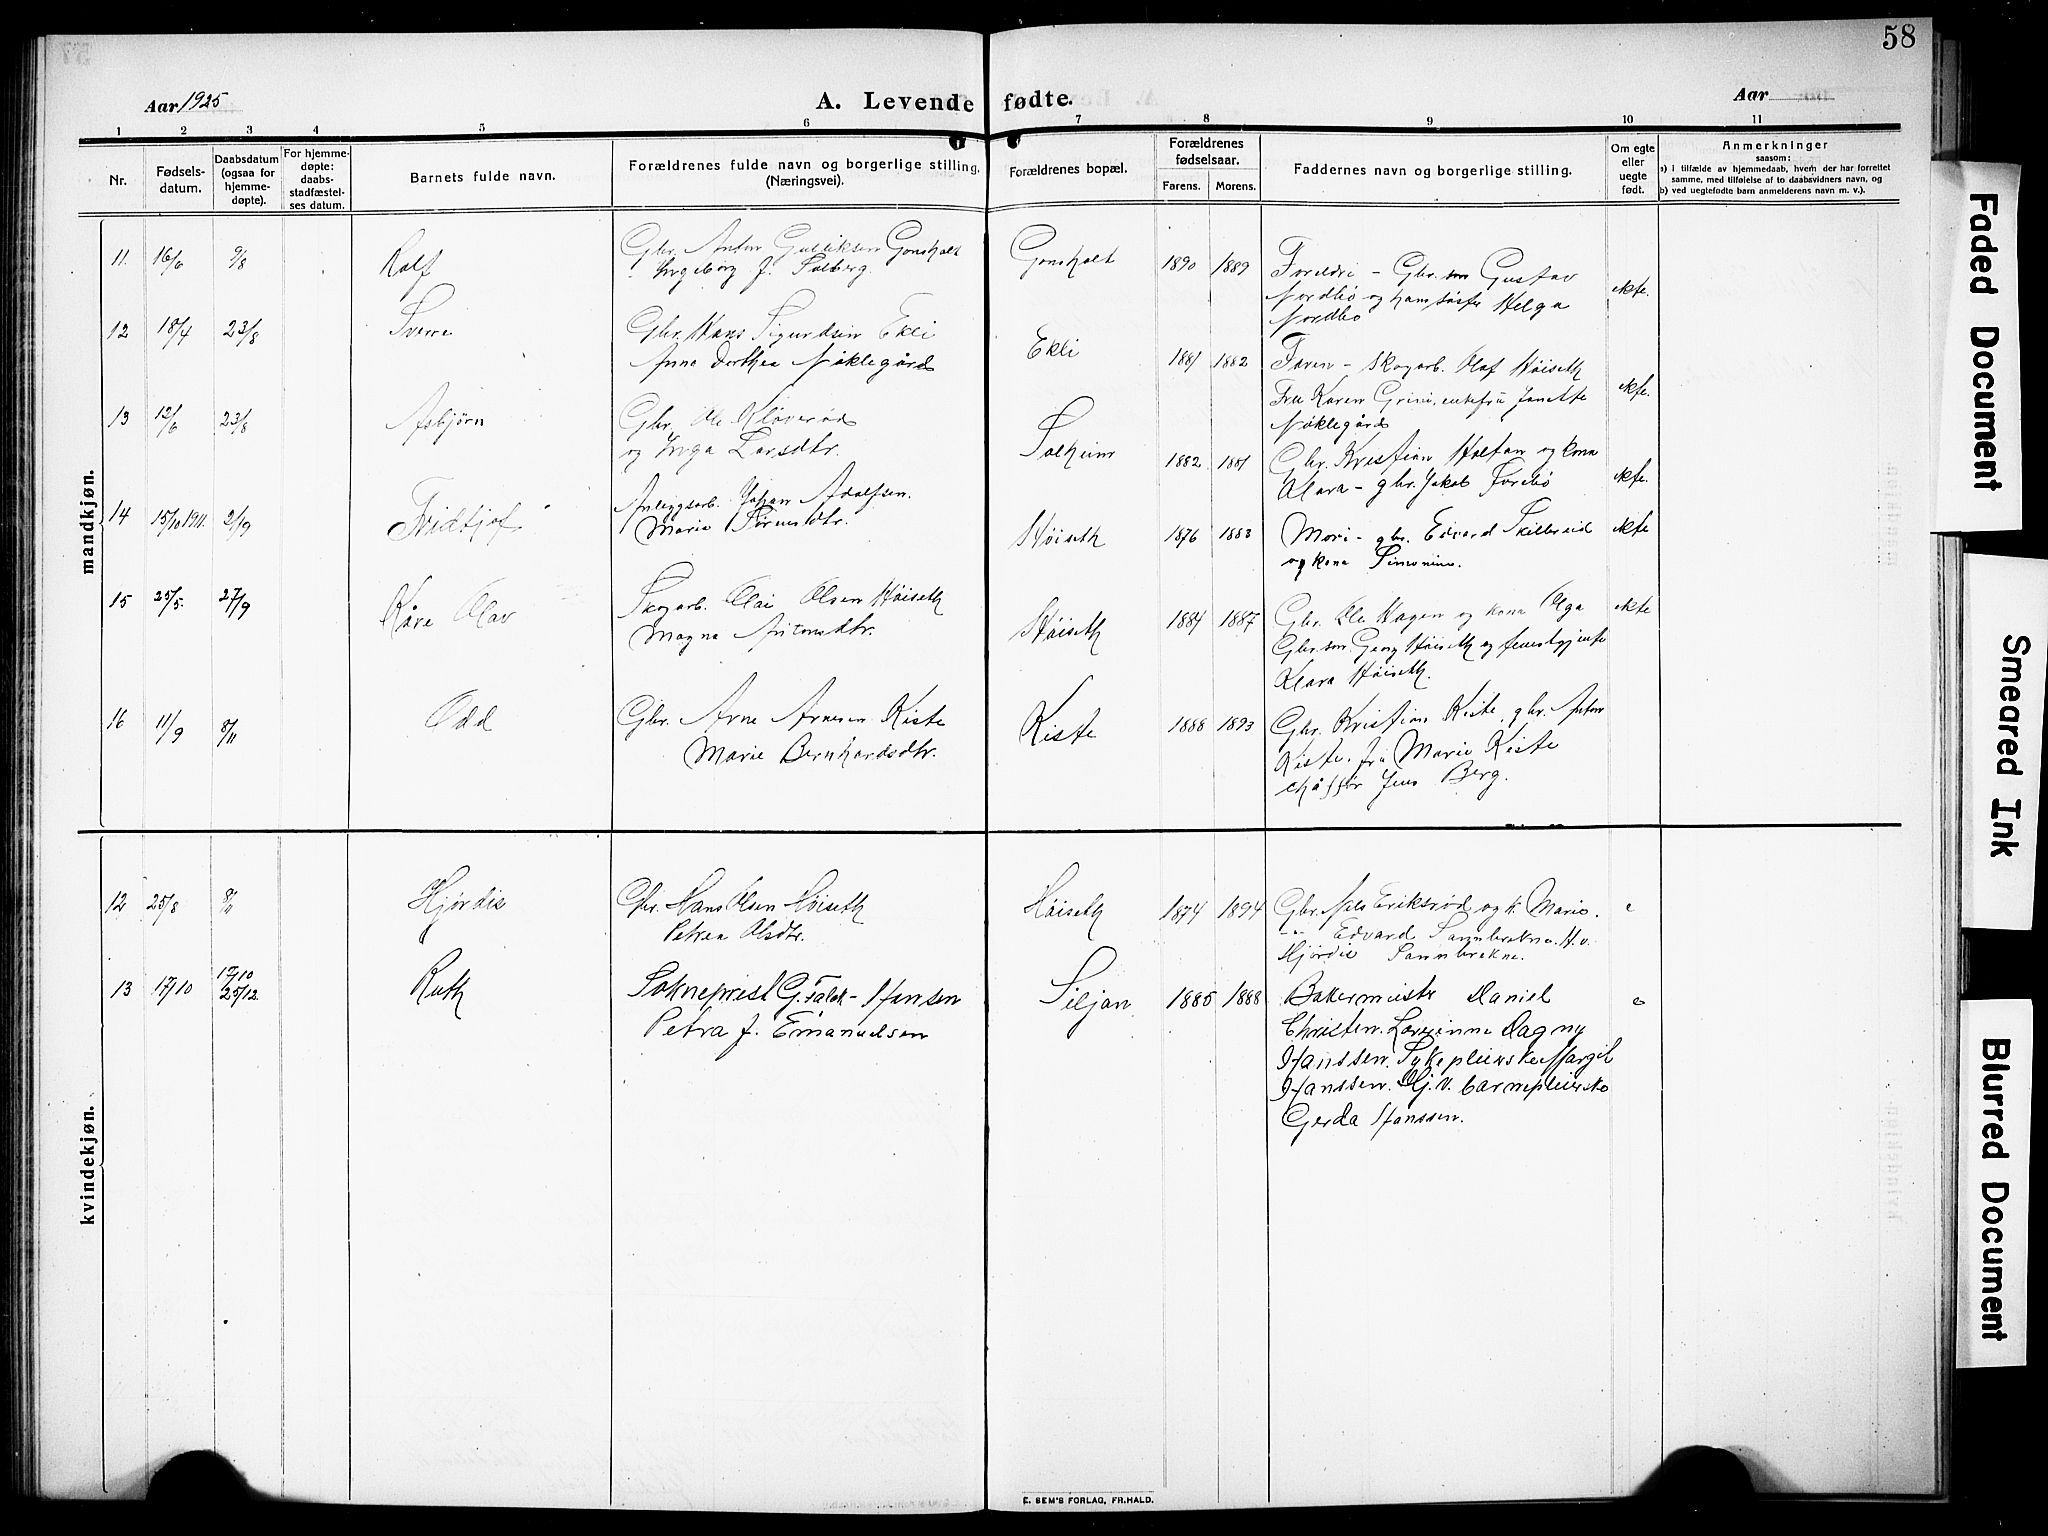 58
Aar 1925
A. Levende fødte.
Aar
1 2 3 4 5 6 7 8 9 10 11
Nr.
Fødsels-
datum.
Daabsdatum
(ogsaa for
hjemme-
døpte).
For hjemme-
døpte:
daabs-
stadfæstel-
ses datum.
Barnets fulde navn.
Forældrenes fulde navn og borgerlige stilling.
(Næringsvei).
Forældrenes bopæl.
Forældrenes
fødselsaar.
Farens. Morens.
Faddernes navn og borgerlige stilling.
Om egte
eller
uegte
født.
Anmerkninger
saasom:
a) i tilfælde av hjemmedaab, hvem der har forrettet
samme, med tilføielse af to daabsvidners navn, og
b) ved uegtefødte barn anmelderens navn m. v.).
mandkjøn.
11 16/6 9/8 Rolf
Gbr. Anton Gulliksen Gonsholt
Ingeborg J. Solberg.
Gonsholt 1890 1889
Foreldri – Gbr. son Gustav
Nordbø og hans søster Helga
Nordbø
ekte.
12 18/4 23/8 Sverre
Gbr. Hans Sigurdsen Ekli
Anna Dorthea Nøklegård
Ekli 1881 1882
Faren – Skogarb. Olaf Høiseth
Fru Karen Grini, enkefru Janette
Nøklegård
ekte.
13 12/6 23/8 Asbjørn
Gbr. Ole Kløverød
og Inga Larsdtr.
Solheim 1882 1881
Gbr. Kristian Holtan og kona
Klara – gbr. Jakob Forebø
ekte.
14 15/10 1911. 2/9 Fridtjof
Anleggsarb. Johan Adolfsen.
Marie Sørensdtr.
Høiseth 1876 1883
Mori – gbr. Edvard Skilbreid
og kona Simonine.
ekte
15 25/5. 27/9 Kåre Olav
Skogarb. Olai Olsen Høiseth
Magna Antonsdtr.
Høiseth 1884 1887
Gbr. Ole Hagen og kona Olga
Gbr. son. Georg Høiseth og
Klara Høiseth.
ekte
16 11/9 8/11 Odd
Gbr. Arne Arnesen Kiste
Marie Bernhardsdtr.
Kiste 1888 1893
Gbr. Kristian Kiste, gbr. Anton
Kiste, fru Marie Kiste
Jens Berg.
kvindekjøn.
12 25/8 8/11 Hjørdis
Gbr. Hans Olsen Høiseth
Petrea Olsdtr.
Høiseth 1874 1894
Gbr. Nils Eriksrød og k. Marie.
Edvard Sannbrekne. H. v.
Hjørdis Sannbrekne.
13 17/10 17/10 25/12. Ruth
Sokneprest G. Falck-Hansen
Petra J. Emanuelsen
Siljan 1885 1888
Bakermester Daniel
Christen. Dagny
Hanssen. Sykepleierske Margit
Hanssen. Hj. v. barnepleierske
Gerda Hanssen.
E. SEM'S FORLAG, FR.HALD.
Faded Document
Smeared Ink
Blurred Document